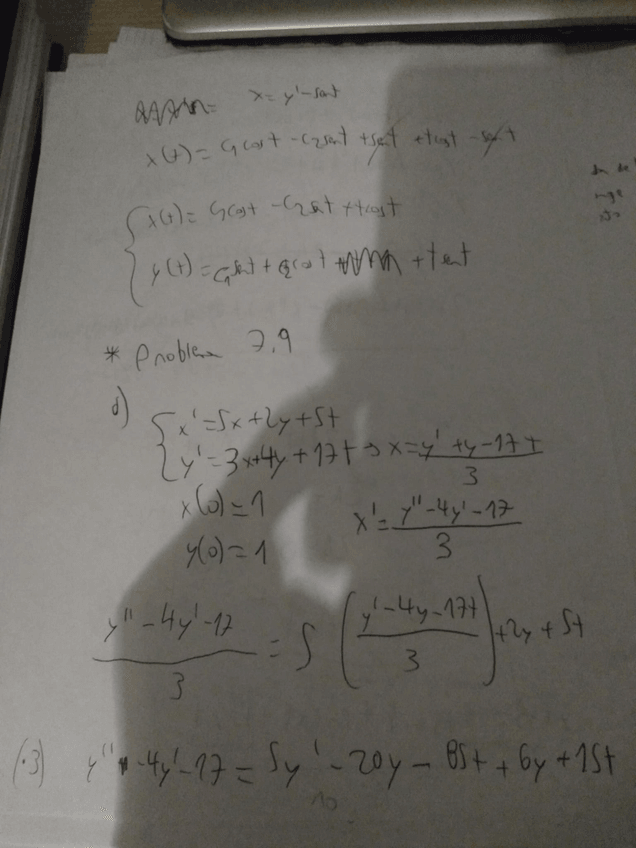 x = y' - sent
x(t) = C₁cost - C₂sent + tsent + tcost - sent
{ x(t) = C₁cost - C₂sent + tcost
y(t) = C₁sent + C₂cost + tsent
* Problema 7.9
d) { x' = 5x + 2y + 5t
y' = 3x + 4y + 17t → x = (y' + y - 17t)/3
x(0) = 1
x' = (y'' - 4y' - 17)/3
y(0) = 1
(y'' - 4y' - 17)/3 = 5((y' - 4y - 17t)/3) + 2y + 5t
(·3) y'' - 4y' - 17 = 5y' - 20y - 85t + 6y + 15t